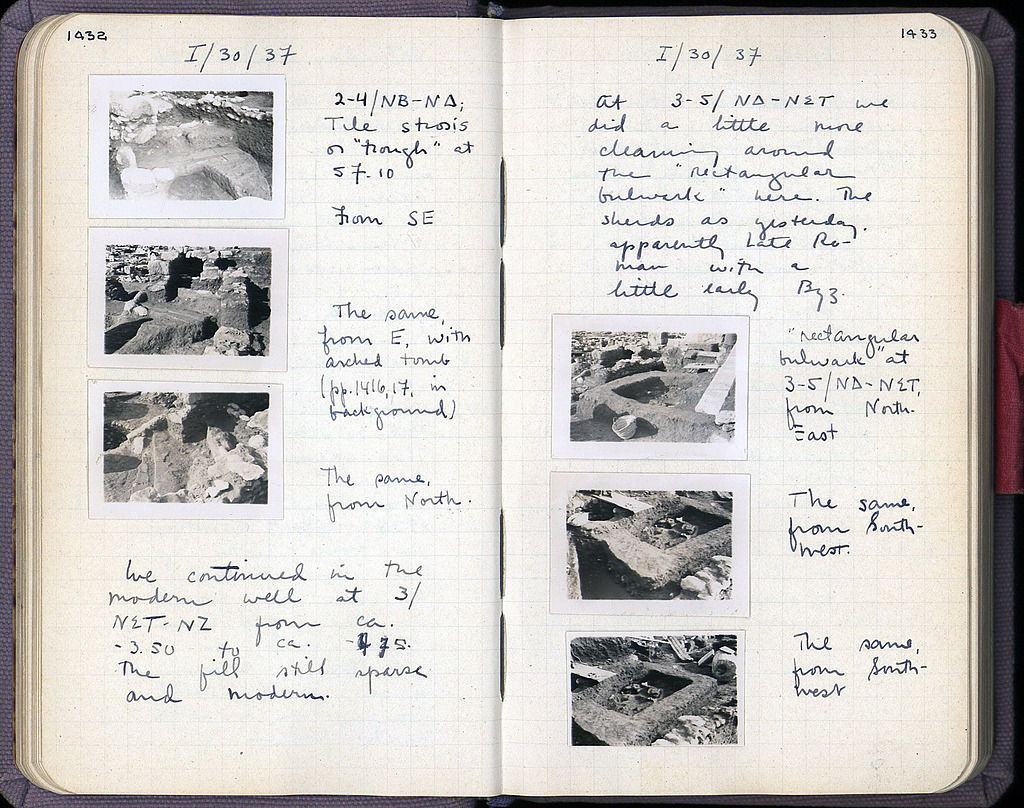 1432
I/30/37
2-4/ΝΒ-ΝΔ;
Tile strosis
or "trough" at
57.10
From SE
The same,
from E, with
arched tomb
(pp. 1416, 17, in
background)
The same,
from North.
We continued in the
modern well at 3/
ΝΣΤ-ΝΖ from ca.
-3.50 to ca.
The fill still sparse
and modern.
1433
I/30/37
At 3-5/ΝΔ-ΝΣΤ we
did a little more
cleaning around
the "rectangular
bulwark" here. The
sherds as yesterday,
apparently Late Ro-
man with a
little early Byz.
"rectangular
bulwark" at
3-5/ΝΔ-ΝΣΤ,
from North-
East
The same,
from South-
west.
The same,
from South-
west